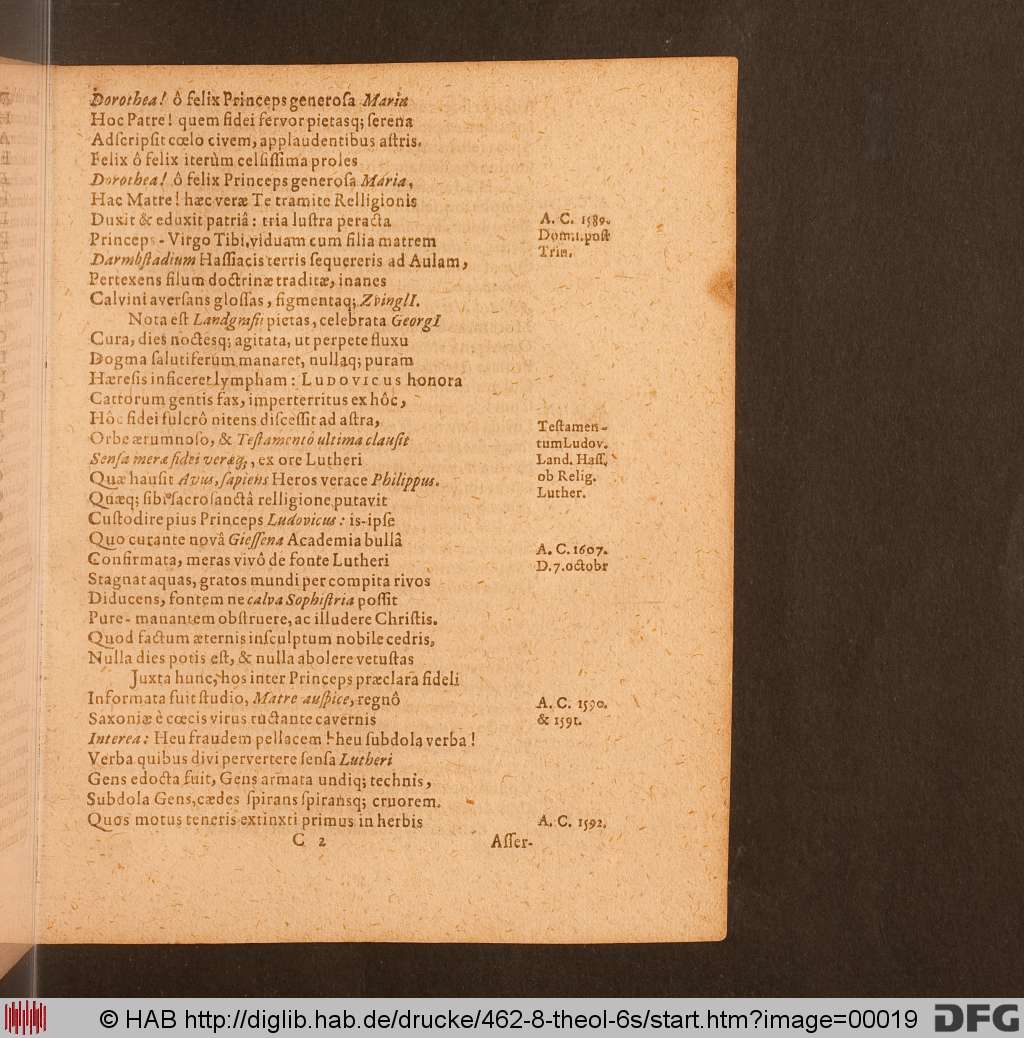 Dorothea! ô felix Princeps generoſa Maria
Hoc Patre! quem fidei fervor pietasq; ſerena
Adſcripſit cœlo civem, applaudentibus aſtris.
Felix ô felix iterùm celſiſſima proles
Dorothea! ô felix Princeps generoſa Maria,
Hac Matre! hæc veræ Te tramite Relligionis
Duxit & eduxit patriâ: tria luſtra peracta
A. C. 1589.
Princeps - Virgo Tibi, viduam cum filia matrem
Dom. 1. poſt
Darmbſtadium Haſſiacis terris ſequereris ad Aulam,
Trin.
Pertexens filum doctrinæ traditæ, inanes
Calvini averſans gloſſas, figmentaq; ZvinglI.
Nota eſt Landgrafii pietas, celebrata GeorgI
Cura, dies noctesq; agitata, ut perpete fluxu
Dogma ſalutiferum manaret, nullaq; puram
Hæreſis inficeret lympham: LUDOVICUS honora
Cattorum gentis fax, imperterritus ex hôc,
Hôc fidei fulcrô nitens diſceſſit ad aſtra,
Orbe ærumnoſo, & Teſtamentô ultima clauſit
Senſa meræ fidei veræq;, ex ore Lutheri
Quæ hauſit Avus, ſapiens Heros verace Philippus.
Quæq; ſibi ſacroſanctâ relligione putavit
Teſtamen-
tum Ludov.
Land. Haſſ.
ob Relig.
Luther.
Cuſtodire pius Princeps Ludovicus: is-ipſe
Quo curante novâ Gieſſena Academia bullâ
Confirmata, meras vivô de fonte Lutheri
A. C. 1607.
D. 7. octobr
Stagnat aquas, gratos mundi per compita rivos
Diducens, fontem ne calva Sophiſtria poſſit
Pure- manantem obſtruere, ac illudere Chriſtis.
Quod factum æternis inſculptum nobile cedris,
Nulla dies potis eſt, & nulla abolere vetuſtas
Juxta hunc, hos inter Princeps præclara fideli
Informata fuit ſtudio, Matre auſpice, regnô
Saxoniæ è cœcis virus ructante cavernis
A. C. 1590.
& 1591.
Interea: Heu fraudem pellacem! heu ſubdola verba!
Verba quibus divi pervertere ſenſa Lutheri
Gens edocta fuit, Gens armata undiq; technis,
Subdola Gens, cædes ſpirans ſpiransq; cruorem.
Quos motus teneris extinxti primus in herbis
A. C. 1592.
C 2
Aſſer-
© HAB http://diglib.hab.de/drucke/462-8-theol-6s/start.htm?image=00019
DFG